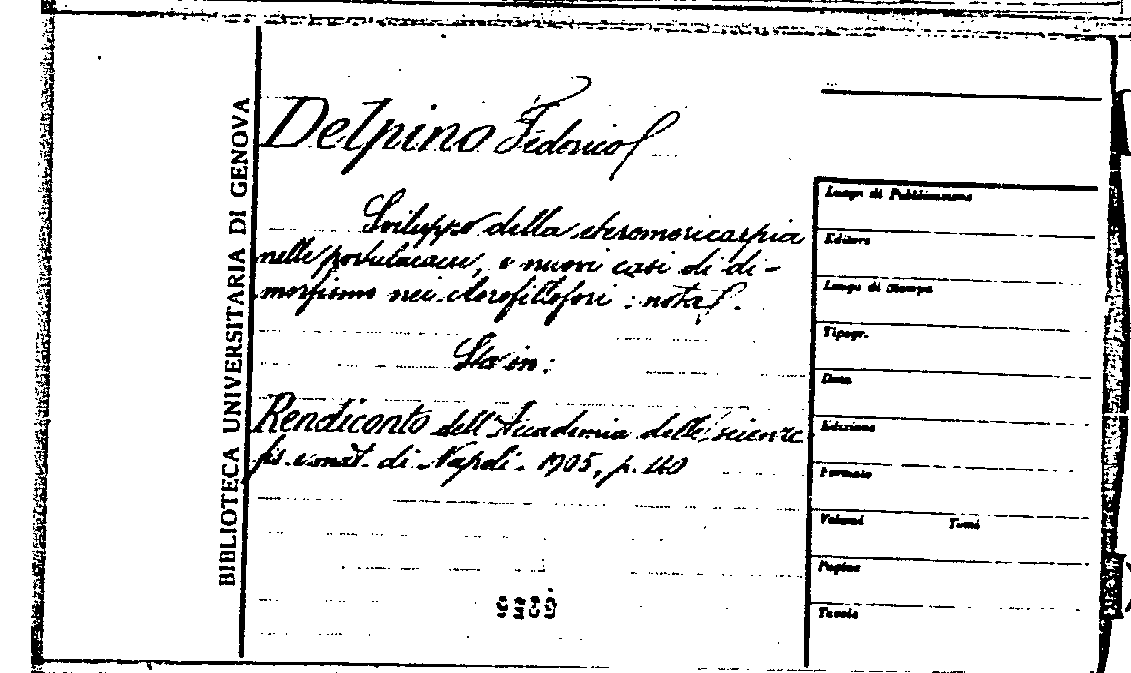 BIBLIOTECA UNIVERSITARIA DI GENOVA
Delpino Federico
Sviluppo della eteromericarpia
nelle portulacacee, e nuovi casi di di-
morfismo nei clorofillofori : nota.
Sta in:
Rendiconto dell'Accademia delle scienze
fis. e mat. di Napoli. 1905, p.
Luogo di Pubblicazione
Editore
Luogo di Stampa
Tipogr.
Data
Edizione
Formato
Volumi Tomi
Pagine
Tavole